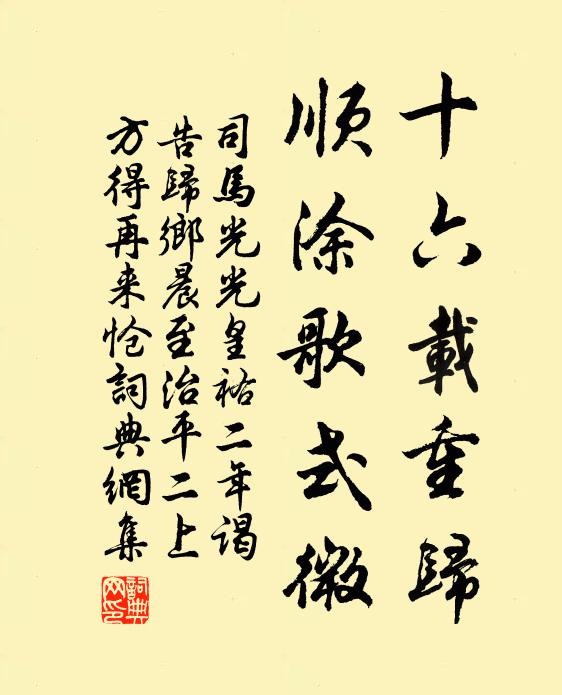 十六載重歸
順涂歌式微
司馬光光皇祐二年謁
告歸鄉晨至治平二上
方得再来怆詞典網集
詞典网印